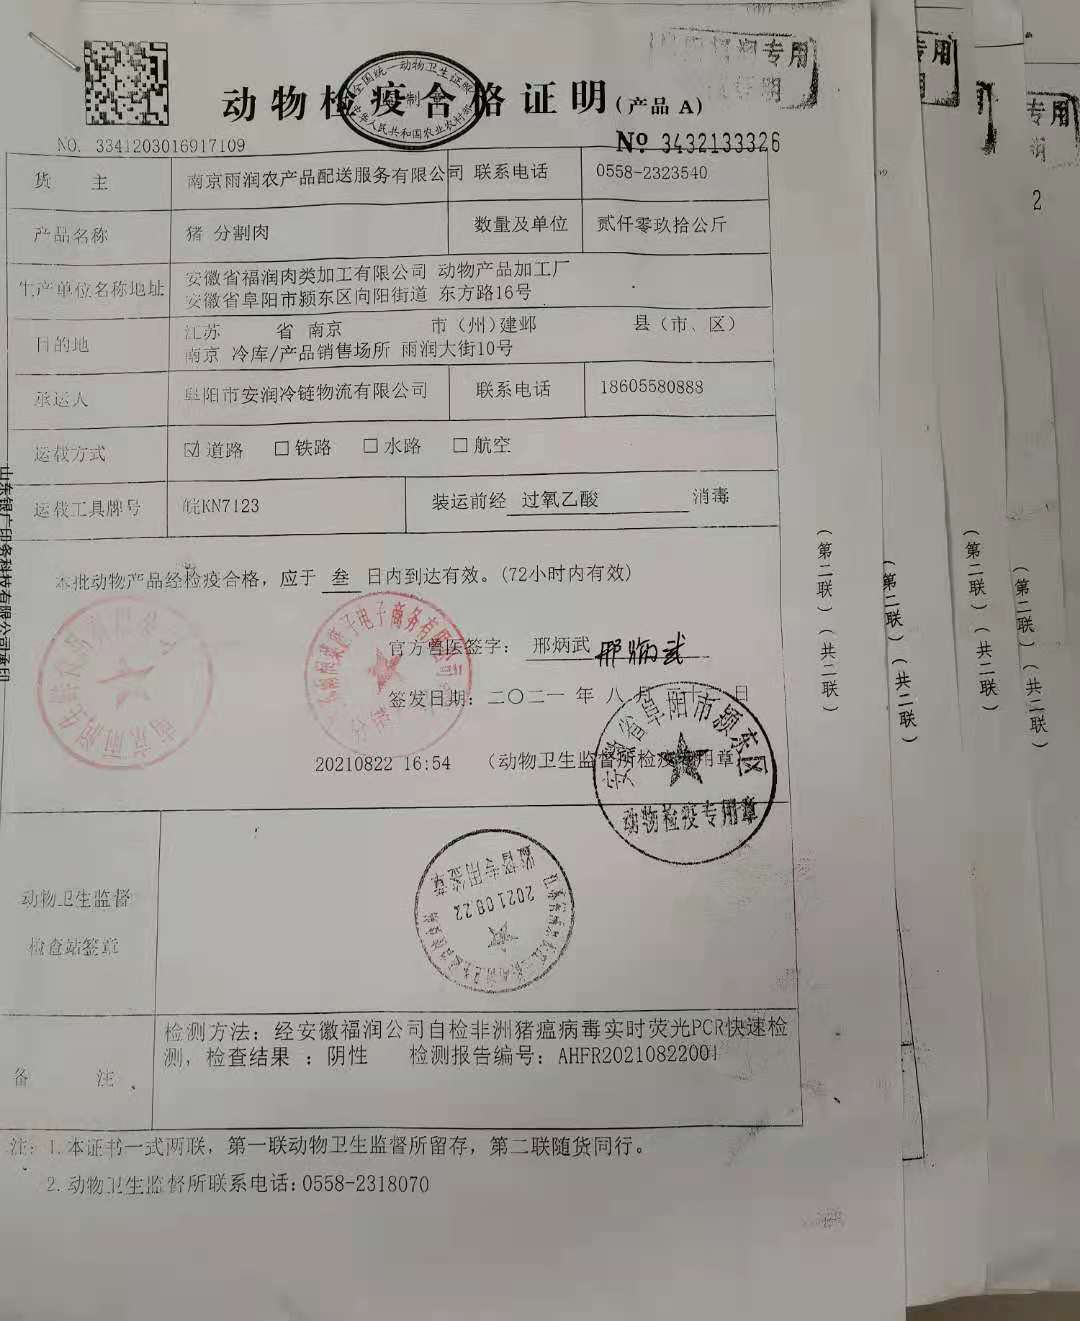 专用
动物检疫合格证明(产品 A)
全国统一动物卫生证照
中华人民共和国农业农村部
NO. 3341203016917109
№ 3432133326
货 主 南京雨润农产品配送服务有限公司 联系电话 0558-2323540
产品名称 猪 分割肉 数量及单位 贰仟零玖拾公斤
生产单位名称地址 安徽省福润肉类加工有限公司 动物产品加工厂
安徽省阜阳市颍东区向阳街道 东方路16号
目的地 江苏 省 南京 市（州）建邺 县（市、区）
南京 冷库/产品销售场所 雨润大街10号
承运人 阜阳市安润冷链物流有限公司 联系电话 18605580888
运载方式 ☑道路 □铁路 □水路 □航空
运载工具牌号 皖KN7123 装运前经 过氧乙酸 消毒
本批动物产品经检疫合格，应于 叁 日内到达有效。(72小时内有效)
官方兽医签字： 邢炳武 邢炳武
签发日期：二〇二一 年 八 月 二十 日
20210822 16:54 （动物卫生监督所检疫专用章
安徽省阜阳市颍东区
动物检疫专用章
动物卫生监督
检查站签章
监督专用签章
2021.08.22
备 注 检测方法：经安徽福润公司自检非洲猪瘟病毒实时荧光PCR快速检
测，检查结果 ：阴性 检测报告编号：AHFR20210822001
注：1.本证书一式两联，第一联动物卫生监督所留存，第二联随货同行。
2.动物卫生监督所联系电话：0558-2318070
山东银广印务科技有限公司承印
（第二联）（共二联）
专用
（第二联）（共二联）
（第二联）（共二联）
专用
2
（第二联）（共二联）